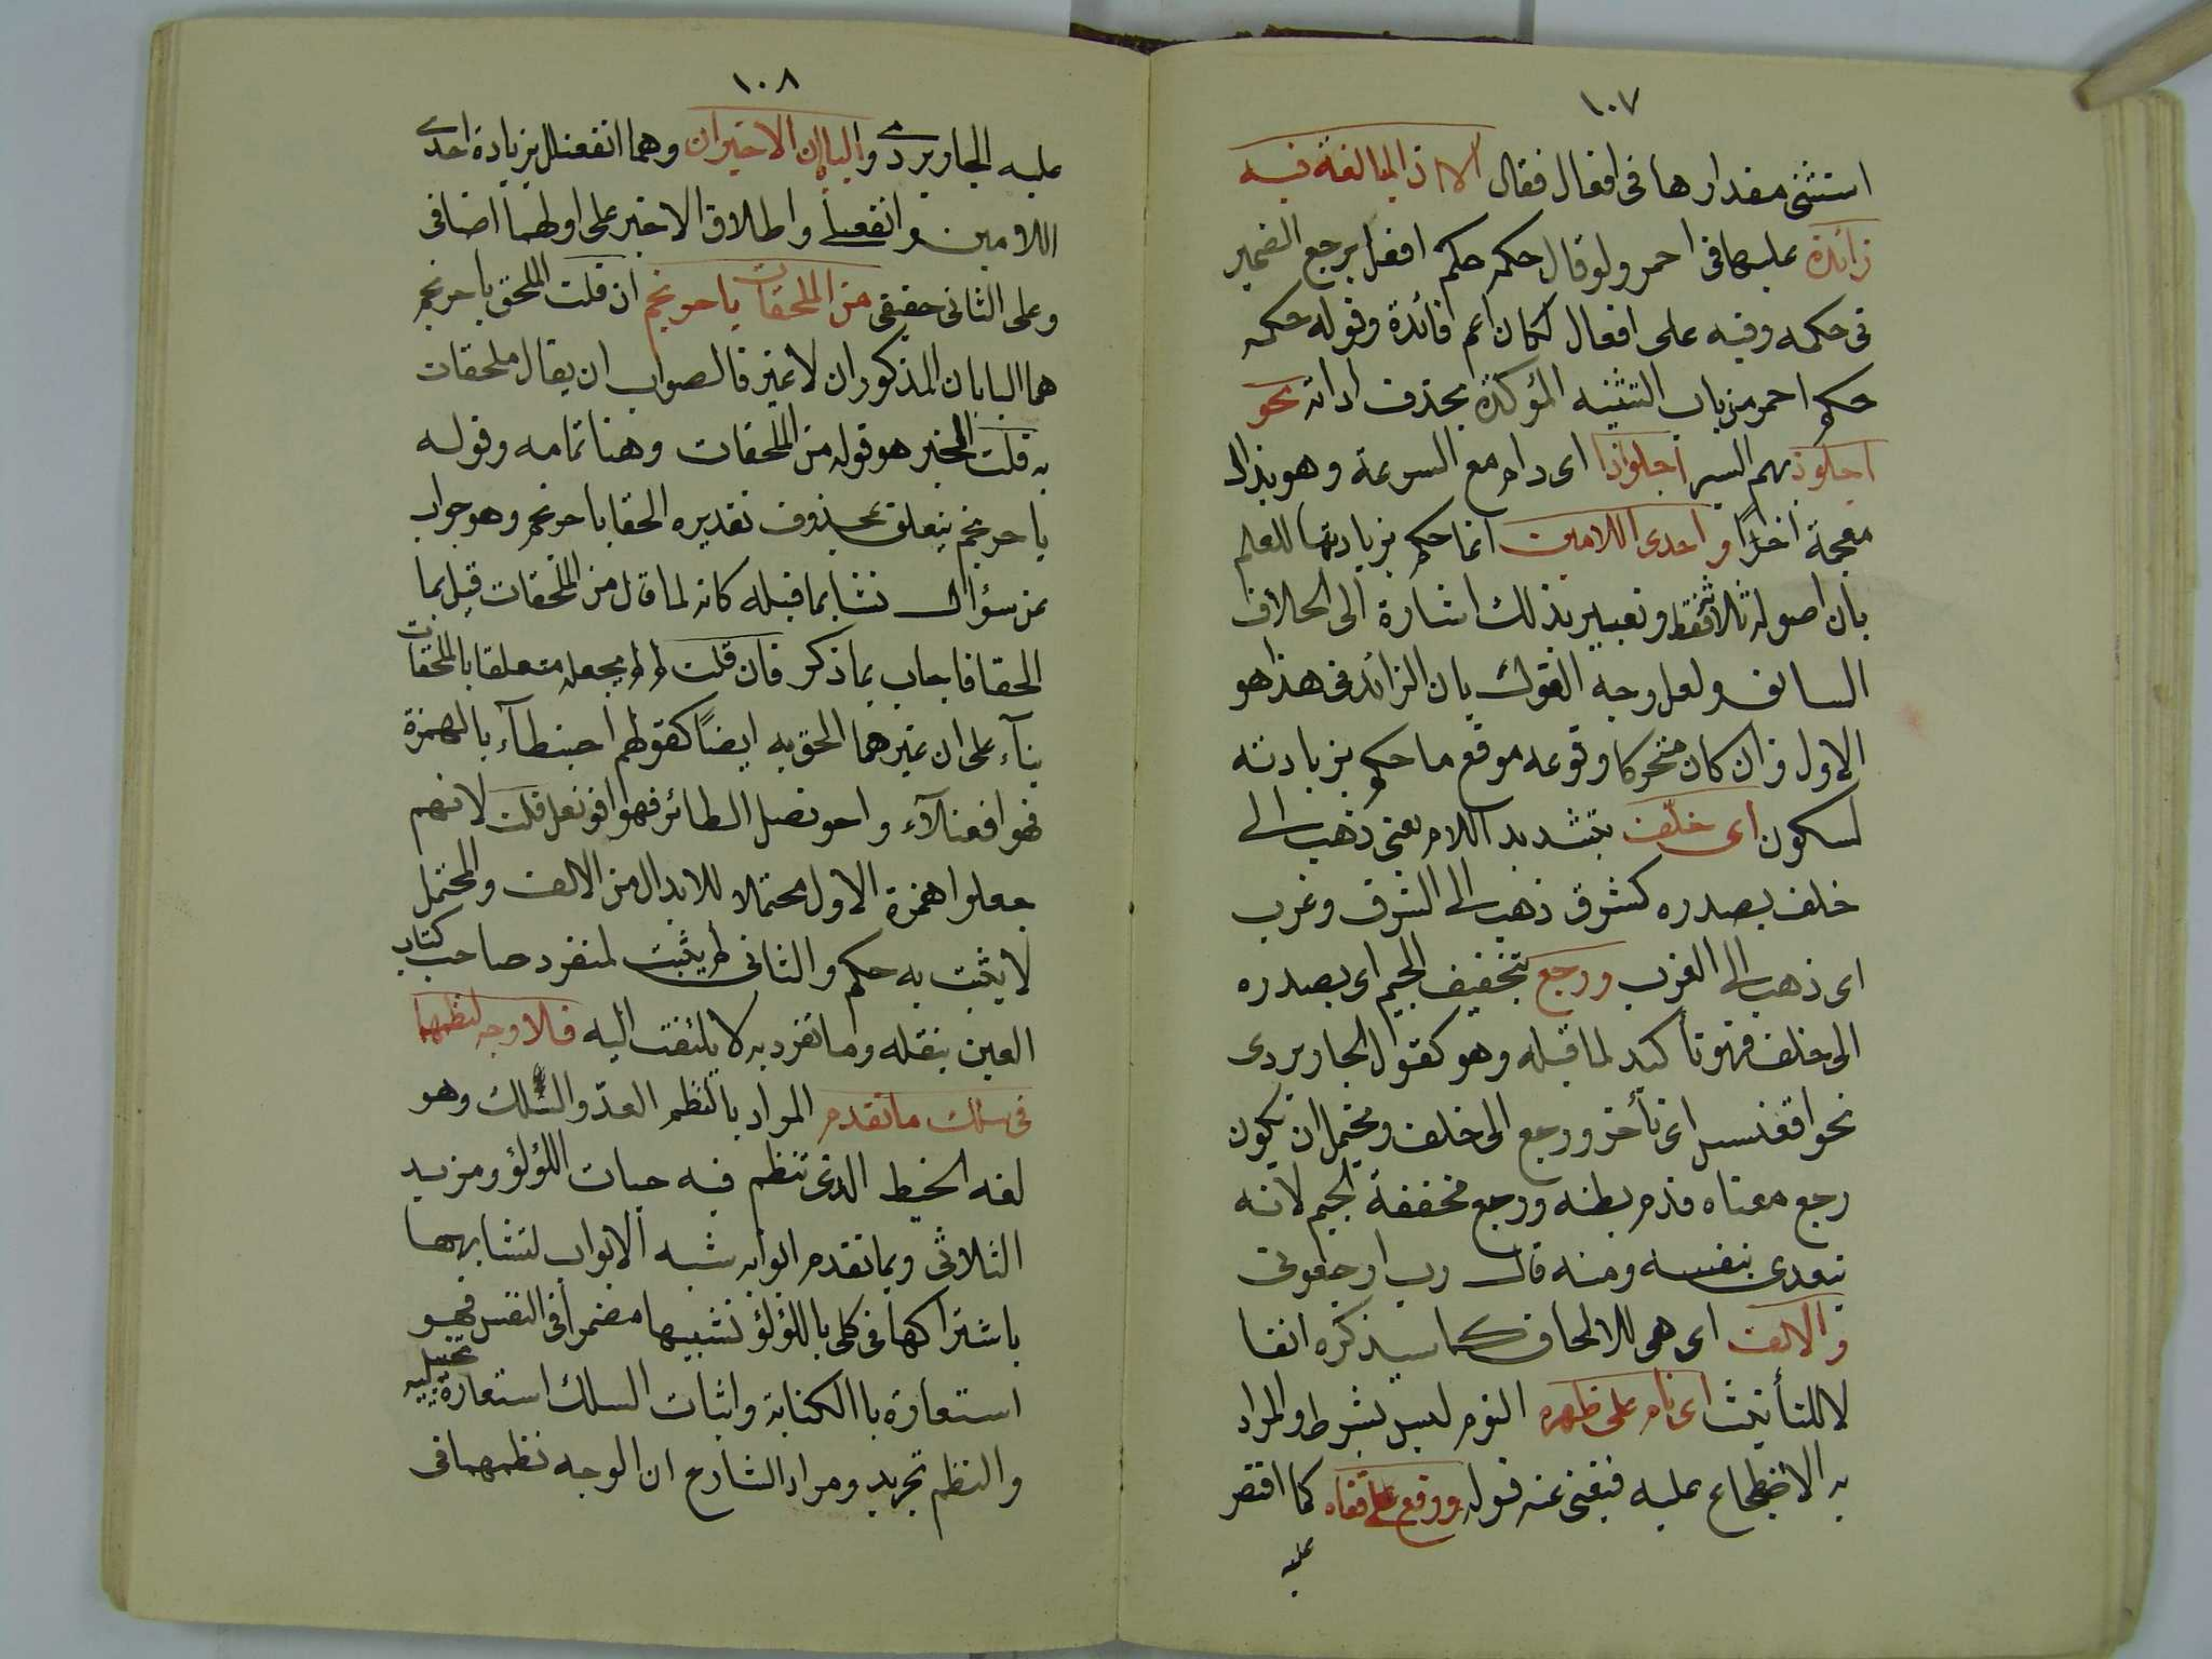 ١٠٧
استثنى مقدارها فى افعال فقال الا ان المبالغة فيه
زائدة عليها فى احمر ولو قال حكمه حكم افعل برجع الضمير
فى حكمه وفيه على افعال لكان اعم فائدة وقوله حكمه
حكم احمر من باب التشبيه المؤكدة بحذف اداته نحو
اجلوذ بهم السير اجلواذا اى دام مع السرعة وهو بذال
معجمة اخرًا واحدى اللامين انما حكم بزيادتها للعلم
بان اصوله ثلاثة فقط وتعبيره بذلك اشارة الى الخلاف
السابق ولعل وجه القول بان الزائد فى هذا هو
الاول وان كان متحركا وقوعه موقع ما حكم بزيادته
لسكون اى خلّف بتشديد اللام يعنى ذهب الى
خلف بصدره كشرق ذهب الى الشرق وغرب
اى ذهب الى الغرب ورجع بتخفيف الجيم اى بصدره
الى خلف فهو تأكيد لما قبله وهو كقول الجاربردى
نحو اقعنسس اى تأخر ورجع الى خلف ويحتمل ان يكون
رجع معناه قدم بطنه ورجع مخففة الجيم لانه
يتعدى بنفسه ومنه قال رب ارجعونى
والالف اى هى للالحاق كما سيذكره انفا
لا للتأنيث اى نام على ظهره النوم ليس بشرط والمراد
به الاضطجاع عليه فيغنى عنه قوله ووقع على قفاه كما اقتصر
عليه
١٠٨
عليه الجاربردى والبابان الاخيران وهما افعنلل بزيادة احدى
اللامين وافعنلى واطلاق الاخير على اولهما اضافى
وعلى الثانى حقيقى من الملحقات باحرنجم ان قلت الملحق باحرنجم
هما البابان المذكوران لا غير فالصواب ان يقال ملحقات
به قلت الخبر هو قوله من الملحقات وهنا تمامه وقوله
باحرنجم يتعلق بمحذوف تقديره الحقا باحرنجم وهو جواب
عن سؤال نشا بما قبله كانه لما قال من الملحقات قيل بما
الحقا فاجاب بما ذكر فان قلت لم لم يجعله متعلقا بالملحقات
بنآء على ان غيرهما الحق به ايضًا كقولهم احبنطآء بالهمزة
فهو افعنلآء واحونصل الطائر فهو افونعل قلت لانهم
جعلوا همزة الاول محتملا للابدال من الالف والمحتمل
لا يثبت به حكم والثانى لم يثبت لمنفرد صاحب كتاب
العين بنقله وما تفرد به لا يلتفت اليه فلا وجه لنظمهما
فى سلك ما تقدم المراد بالنظم العدّ والسلك وهو
لغه الخيط الذى تنظم فيه حبات اللؤلؤ ومزيد
الثلاثى وبما تقدم ابوابه شبه الابواب لتشابهها
باشتراكها فى كلى باللؤلؤ تشبيها مضمرا فى النفس فهو
استعارة بالكناية واثبات السلك استعارة تخييليه
والنظم تجريد ومراد الشارح ان الوجه نظمهما فى